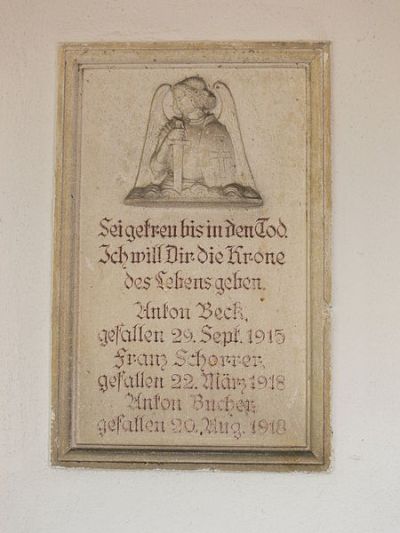 Sei getreu bis in den Tod.
Ich will Dir die Krone
des Lebens geben.
Anton Beck,
gefallen 29. Sept. 1915
Franz Schorrer,
gefallen 22. März 1918
Anton Bucher,
gefallen 20. Aug. 1918